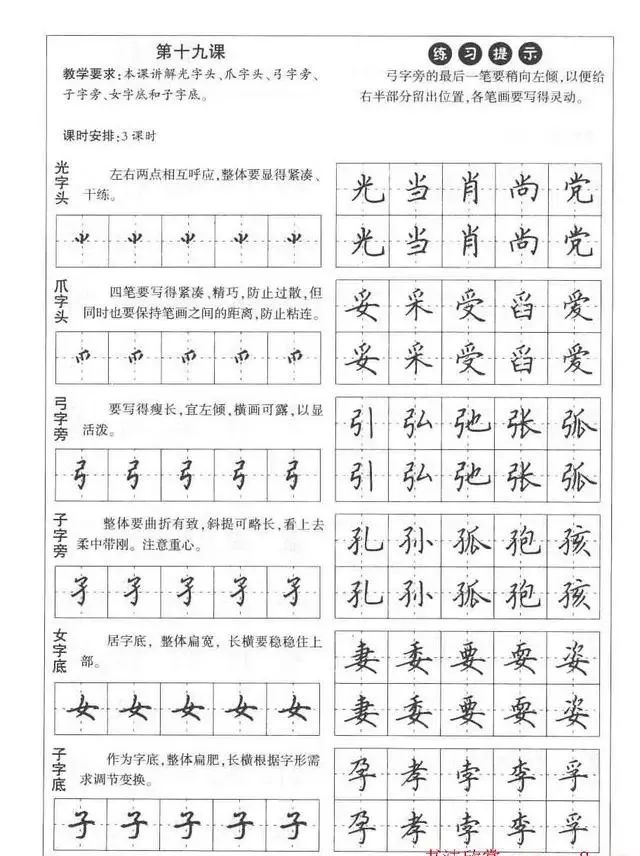 第十九课
教学要求:本课讲解光字头、爪字头、弓字旁、
子字旁、女字底和子字底。
课时安排:3课时
练习提示
弓字旁的最后一笔要稍向左倾,以便给
右半部分留出位置,各笔画要写得灵动。
光字头
左右两点相互呼应,整体要显得紧凑、
干练。
光当肖尚党
光当肖尚党
爪字头
四笔要写得紧凑、精巧,防止过散,但
同时也要保持笔画之间的距离,防止粘连。
爫爫爫爫爫
妥采受舀爱
妥采受舀爱
弓字旁
要写得瘦长,宜左倾,横画可露,以显
活泼。
弓弓弓弓弓
引弘弛张弧
引弘弛张弧
子字旁
整体要曲折有致,斜提可略长,看上去
柔中带刚。注意重心。
孑孑孑孑孑
孔孙孤孢孩
孔孙孤孢孩
女字底
居字底,整体扁宽,长横要稳稳住上
部。
女女女女女
妻委要耍姿
妻委要耍姿
子字底
作为字底,整体扁肥,长横根据字形需
求调节变换。
子子子子子
孕孝孛李孚
孕孝孛李孚